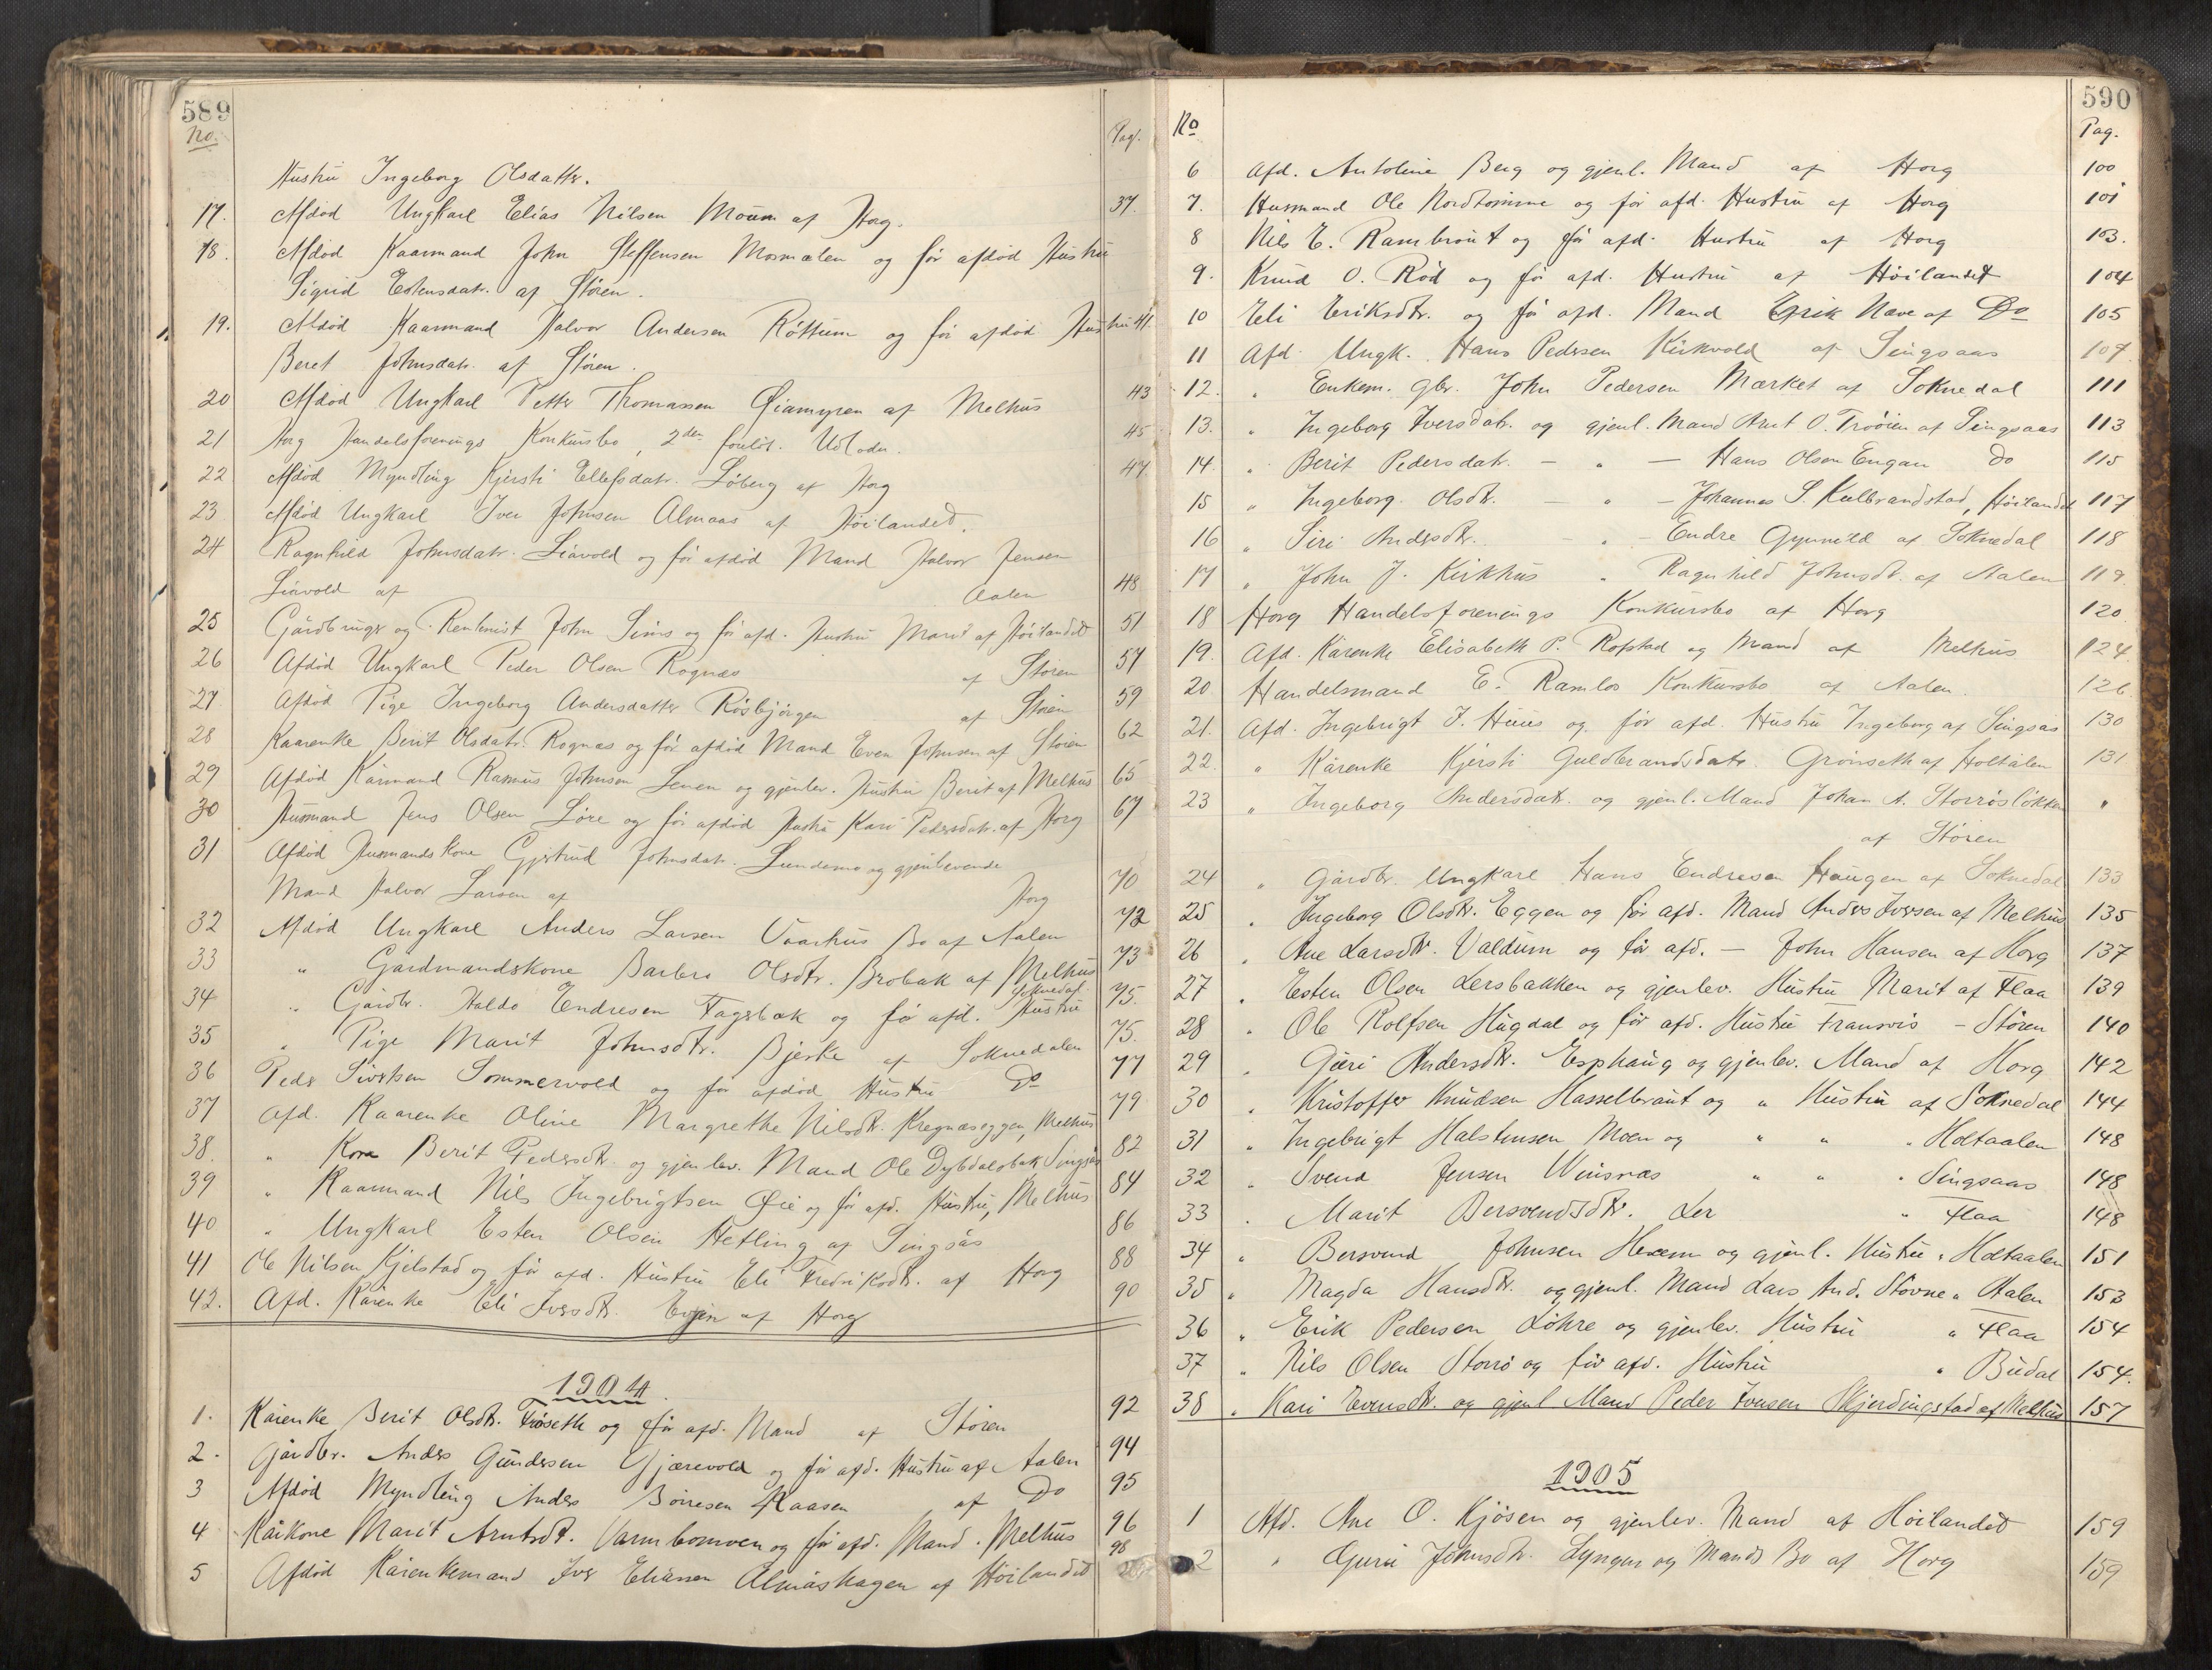 589
No.
Pag.
Hustru Ingeborg Olsdatter.
17. Afdød Ungkarl Elias Nilsen Moum af Horg. 37.
18. Afdød Kaarmand John Steffensen Mosmælen og før afdød Hustru
Sigrid Estensdatr. af Støren.
19. Afdød Kaarmand Halvor Andersen Røttum og før afdød Hustru 41.
Beret Johnsdatr. af Støren.
20 Afdød Ungkarl Petter Thomassen Øiamyren af Melhus 43
21 Horg Handelsforenings Konkursbo, 2den foreløb. Udlodn. 45
22 Afdød Myndling Kjersti Ellefsdatr. Løberg af Horg 47.
23 Afdød Ungkarl Iver Johnsen Almaas af Høilandet.
24 Ragnhild Johnsdatr. Liavold og før afdød Mand Halvor Jensen
Liavold af Aalen 48
25 Gårdbruger og Rentenist John Sims og før afd. Hustru Marit af Høilandet 51
26 Afdød Ungkarl Peder Olsen Rognæs af Støren 57
27 Afdød Pige Ingeborg Andersdatter Røsbjørgen af Støren 59
28 Kaarenke Berit Olsdatr. Rognæs og før afdød Mand Even Johnsen af Støren 62
29 Afdød Kårmand Rasmus Johnsen Lenen og gjenlev. Hustru Berit af Melhus 65
30 Husmand Jens Olsen Løre og før afdød Hustru Kari Pedersdatr. af Horg 67
31 Afdød Husmandskone Gjertrud Johnsdatr. Lundemo og gjenlevende
Mand Halvor Larsen af Horg 70
32 Afdød Ungkarl Anders Larsen Vaarhus Bo af Aalen 72
33 " Gårdmandskone Barbro Olsdtr. Brobak af Melhus 73
34 " Gårdbr. Haldo Endresen Fagerbæk og før afd. Hustru Soknedal 75.
35 " Pige Marit Johnsdtr. Bjerke af Soknedalen 75.
36 Peder Sivertsen Sommervold og før afdød Hustru Do 77
37 Afd. Kaarenke Oline Margrethe Nilsdtr. Kregnæseggen, Melhus 79
38. " Kone Berit Pedersdtr. og gjenlev. Mand Ole Dybdalsbak Singsås 82
39 " Kaarmand Nils Ingebrigtsen Øie og før afd. Hustru, Melhus 84
40 " Ungkarl Esten Olsen Hetling af Singsås 86
41 Ole Nilsen Kjelstad og før afd. Hustru Eli Fredriksdtr. af Horg 88
42. Afd. Kårenke Eli Iversdtr. Evjen af Horg 90
1904.
1. Kårenke Berit Olsdtr. Frøseth og før afd. Mand af Støren 92
2. Gårdbr. Anders Gundersen Gjærevold og før afd. Hustru af Aalen 94
3 Afdød Myndling Anders Børresen Haasen af Do 95
4 Kårkone Marit Arntsdt. Varmbomoen og før afd. Mand. Melhus 96
5 Afdød Kårenkemand Iver Eliassen Almåshagen af Høilandet 98
590
No
Pag.
6 Afd. Antoline Berg og gjenl. Mand af Horg 100
7. Husmand Ole Nordtømme og før afd. Hustru af Horg 101
8 Nils E. Rambraut og før afd. Hustru af Horg 103.
9. Knud O. Rød og før afd. Hustru af Høilandet 104
10 Eli Eriksdtr. og før afd. Mand Erik Næve af Do 105
11 Afd. Ungk. Hans Pedersen Kirkvold af Singsaas 107.
12. " Enkem. gbr. John Pedersen Mærket af Soknedal 111
13. " Ingeborg Iversdatr. og gjenl. Mand Arnt O. Trøøien af Singsaas 113
14. " Berit Pedersdatr. — " — Hans Olsen Engan Do 115
15 " Ingeborg Olsdtr. — " — Johannes S. Kulbrandstad, Høilandet 117
16 " Siri Andersdtr. - " - Endre Gynnild af Soknedal 118
17 " John J. Kirkhus " Ragnhild Johnsdtr. af Aalen 119.
18 Horg Handelsforenings Konkursbo af Horg 120
19. Afd. Kårenke Elisabeth P. Rofstad og Mand af Melhus 124.
20 Handelsmand E. Ramlos Konkursbo af Aalen. 126.
21. Afd. Ingebrigt J. Huus og før afd. Hustru Ingeborg af Singsas 130
22. " Kårenke Kjersti Guldbrandsdatr. Grønseth af Holtålen 131
23 " Ingeborg Andersdatr. og gjenl. Mand Johan A. Storrøsløkken "
af Støren
24 " Gårdbr. Ungkarl Hans Endresen Haugen af Soknedal 133
25 " Ingeborg Olsdtr. Eggen og før afd. Mand Anders Iversen af Melhus 135
26 " Ane Larsdtr. Valdum og før afd. — John Hansen af Horg 137
27 " Esten Olsen Lersbakken og gjenlev. Hustru Marit af Flaa 139
28 " Ole Rolfsen Hugdal og før afd. Hustru Fransvis - Støren 140
29 " Guri Andersdtr. Esphaug og gjenlev. Mand af Horg 142
30 " Kristoffer Knudsen Hasselbraut og " Hustru af Soknedal 144
31 " Ingebrigt Halstensen Moen og " " " Holtaalen 148
32 " Svend Jensen Winsnæs " " " Singsaas 148
33 " Marit Bersvendsdtr. Ler " Flaa 148
34 " Bersvend Johnsen Hexem og gjenl. Hustru " Holtaalen 151
35 " Magda Hansdtr. og gjenl. Mand Lars And. Støvne " Aalen 153
36 " Erik Pedersen Løhre og gjenlev. Hustru " Flaa 154
37 " Nils Olsen Storrø og før afd. Hustru " Budal 154.
38 " Kari Evensdtr. og gjenl Mand Peder Iversen Skjerdingstad af Melhus 157
1905
1 Afd. Ane O. Kjøsen og gjenlev. Mand af Høilandet 159
2 " Guru Johnsdtr. Lyngen og Mands Bo af Horg 159